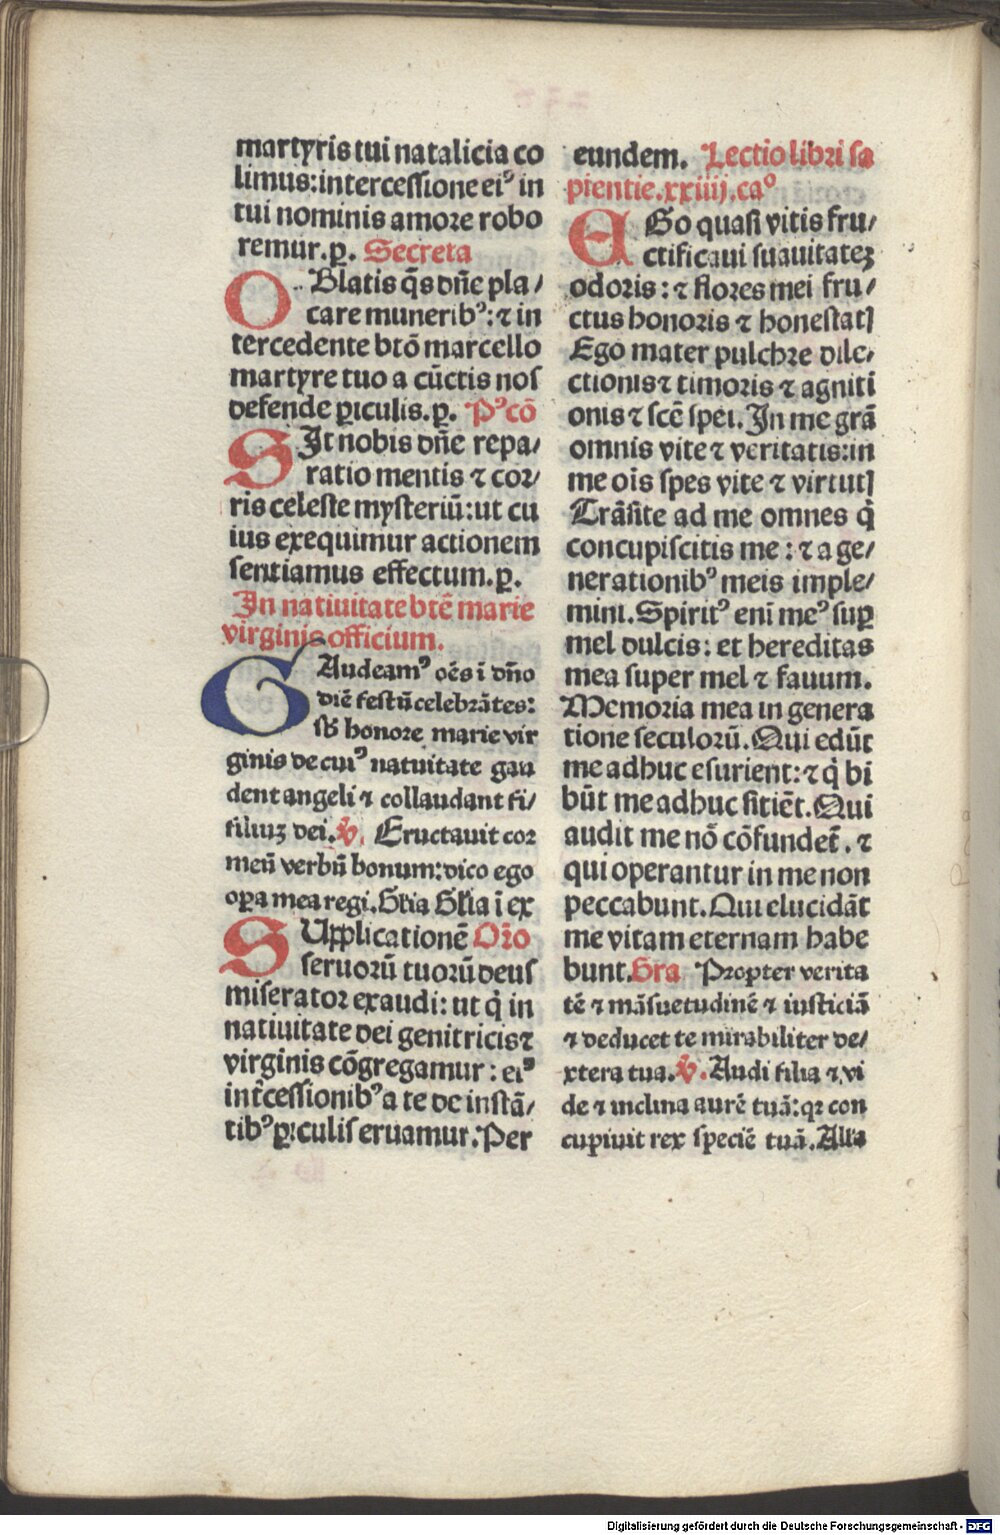 martyris tui natalicia co
limus:intercessione eiꝰ in
tui nominis amore robo
remur.ꝑ. Secreta
OBlatis q̄s dn̄e pla/
care muneribꝰ:⁊ in
tercedente btō marcello
martyre tuo a cūctis nos
defende ꝑiculis.ꝑ. Pꝰcō
SIt nobis dn̄e repa/
ratio mentis ⁊ cor/
ris celeste mysteriū:ut cu
ius exequimur actionem
sentiamus effectum.ꝑ.
In natiuitate btē marie
virginis officium.
GAudeamꝰ oēs ī dn̄o
diē festū celebrātes:
sb̄ honore marie vir
ginis de cuiꝰ natuitate gau
dent angeli ⁊ collaudant fi/
filiuꝫ dei.℣. Eructauit cor
meū verbū bonum:dico ego
oꝑa mea regi.Gl̄ia Gl̄ia ī ex
SUꝑplicationē Or̄o
seruorū tuorū deus
miserator exaudi: ut q̇ in
natiuitate dei genitricis ⁊
virginis cōgregamur: eiꝰ
int̄cessionibꝰ a te de instā/
tibꝰ ꝑiculis eruamur. Per
eundem. Lectio libri sa
pientie.xxiiij.caº
EGo quasi vitis fru/
ctificaui suauitateꝫ
odoris: ⁊ flores mei fru/
ctus honoris ⁊ honestatꝭ
Ego mater pulchre dile/
ctionis ⁊ timoris ⁊ agniti
onis ⁊ scē spei. In me grā
omnis vite ⁊ veritatis:in
me oīs spes vite ⁊ virtutꝭ
Trāsite ad me omnes q̇
concupiscitis me: ⁊ a ge/
nerationibꝰ meis imple/
mini. Spiritꝰ eni meꝰ suꝑ
mel dulcis: et hereditas
mea super mel ⁊ fauum.
Memoria mea in genera
tione seculorū. Qui edūt
me adhuc esurient: ⁊ q̇ bi
būt me adhuc sitiēt. Qui
audit me nō cōfundet̄. ⁊
qui operantur in me non
peccabunt. Qui elucidāt
me vitam eternam habe
bunt. Gra Propter verita
tē ⁊ māsuetudinē ⁊ iusticiā
⁊ deducet te mirabiliter de/
xtera tua.℣. Audi filia ⁊ vi
de ⁊ inclina aurē tuā:qꝛ con
cupiuit rex speciē tuā. All'a
Digitalisierung gefördert durch die Deutsche Forschungsgemeinschaft - DFG